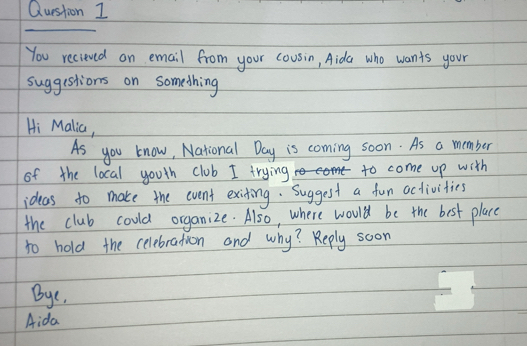 Question 1
You recieved an email from your cousin, Aida who wants your
suggestions on something
Hi Malia,
As you know, National Day is coming soon. As a member
of the local youth club I trying to come to come up with
ideas to make the event exiting. Suggest a fun activities
the club could organize. Also, where would be the best place
to hold the celebration and why? Reply soon
Bye,
Aida